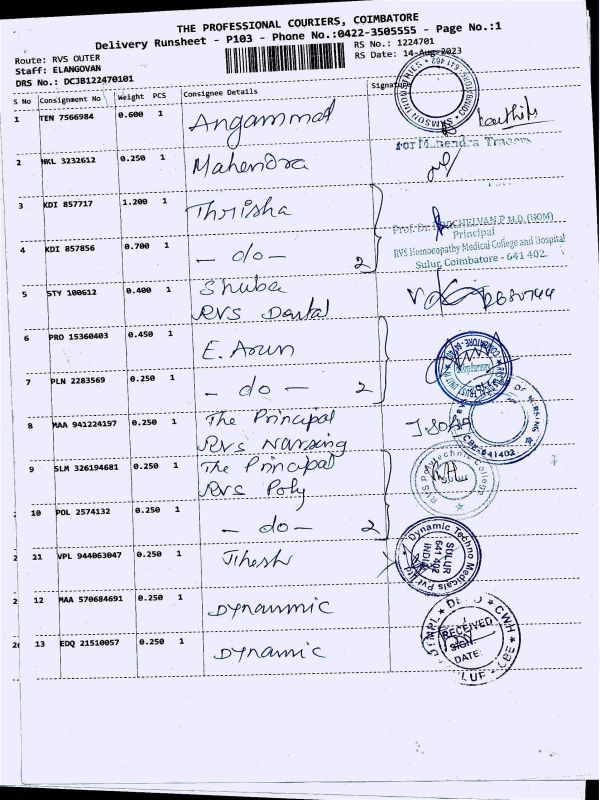 THE PROFESSIONAL COURIERS, COIMBATORE
Delivery Runsheet - P103 - Phone No.:0422-3505555 - Page No.:1
Route: RVS OUTER
RS No.: 1224701
Staff: ELANGOVAN
RS Date: 14-Aug-2023
DRS No.: DCJB122470101
S No Consignment No Weight PCS Consignee Details Signature
1 TEN 7566984 0.600 1 Angammal
2 NKL 3232612 0.250 1 Mahendra
for Mahendra Tracors
3 KDI 857717 1.200 1 Thrisha
P.M.D.(HOM)
Principal
4 KDI 857856 0.700 1 - do - 2
RVS Homoeopathy Medical College and Hospital
Sulur, Coimbatore - 641 402.
5 STY 100612 0.400 1 Shuba
RVS Dental
6 PRO 15360403 0.450 1 E. Arun
7 PLN 2283569 0.250 1 - do - 2
8 MAA 941224197 0.250 1 The Principal
RVS Nursing
9 SLM 326194681 0.250 1 The Principal
RVS Poly
RVS Polytechnic College
Sulur
10 POL 2574132 0.250 1 - do - 2
11 VPL 944063047 0.250 1 Jithesh
Dynamic Techno Medicals Pvt Ltd
SULUR
641 402
INDIA
12 MAA 570684691 0.250 1 Dynammic
13 EDQ 21510057 0.250 1 Dynamic
RECEIVED
SIGN
DATE: